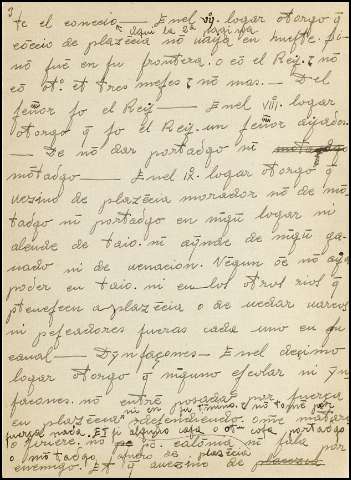 3
te el concejo — E nel vij. logar otorgo q̃
Aqui la 2ª pagina
cõcejo de plazẽcia nõ uaya en hueste. si
nõ fuẽ en su frontera. o cõ el Rey. ꝛ nõ
cõ otº. et tres meses ꝛ nõ mas. — Del
señor so el Rey — E nel viij. logar
otorgo q̃ so el Rey un señor ayades.
— De nõ dar portadgo ni
mõtadgo — E nel ix. logar otorgo q̃
uezino de plazẽcia morador nõ de mõ
tadgo ni portadgo en nigũ logar ni
allende de taio. ni aquẽnde de nigũ ga
nado ni de uenacion. Nigun õe nõ aya
poder en taio. ni en los otros rios q̃
ptenescen a plazẽcia o de uedar uarcos
ni pescadores fueras cada uno en su
canal — Dynfaçones — E nel deçimo
logar otorgo q̃ ninguno escolar ni yn
façones. nõ entrẽ posada por fuerça
en plazẽcia ni en su tmino. ꝛ nõ tomẽ por
fuerça nada. Et si alguno casa o otª cosa portadgo
o mõtadgo fuero de plazẽcia
enemigo. Et q̃ auezino de